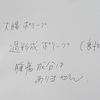 大腸ポリープ
過形成ポリープ (良
腫瘍成分は
ありません